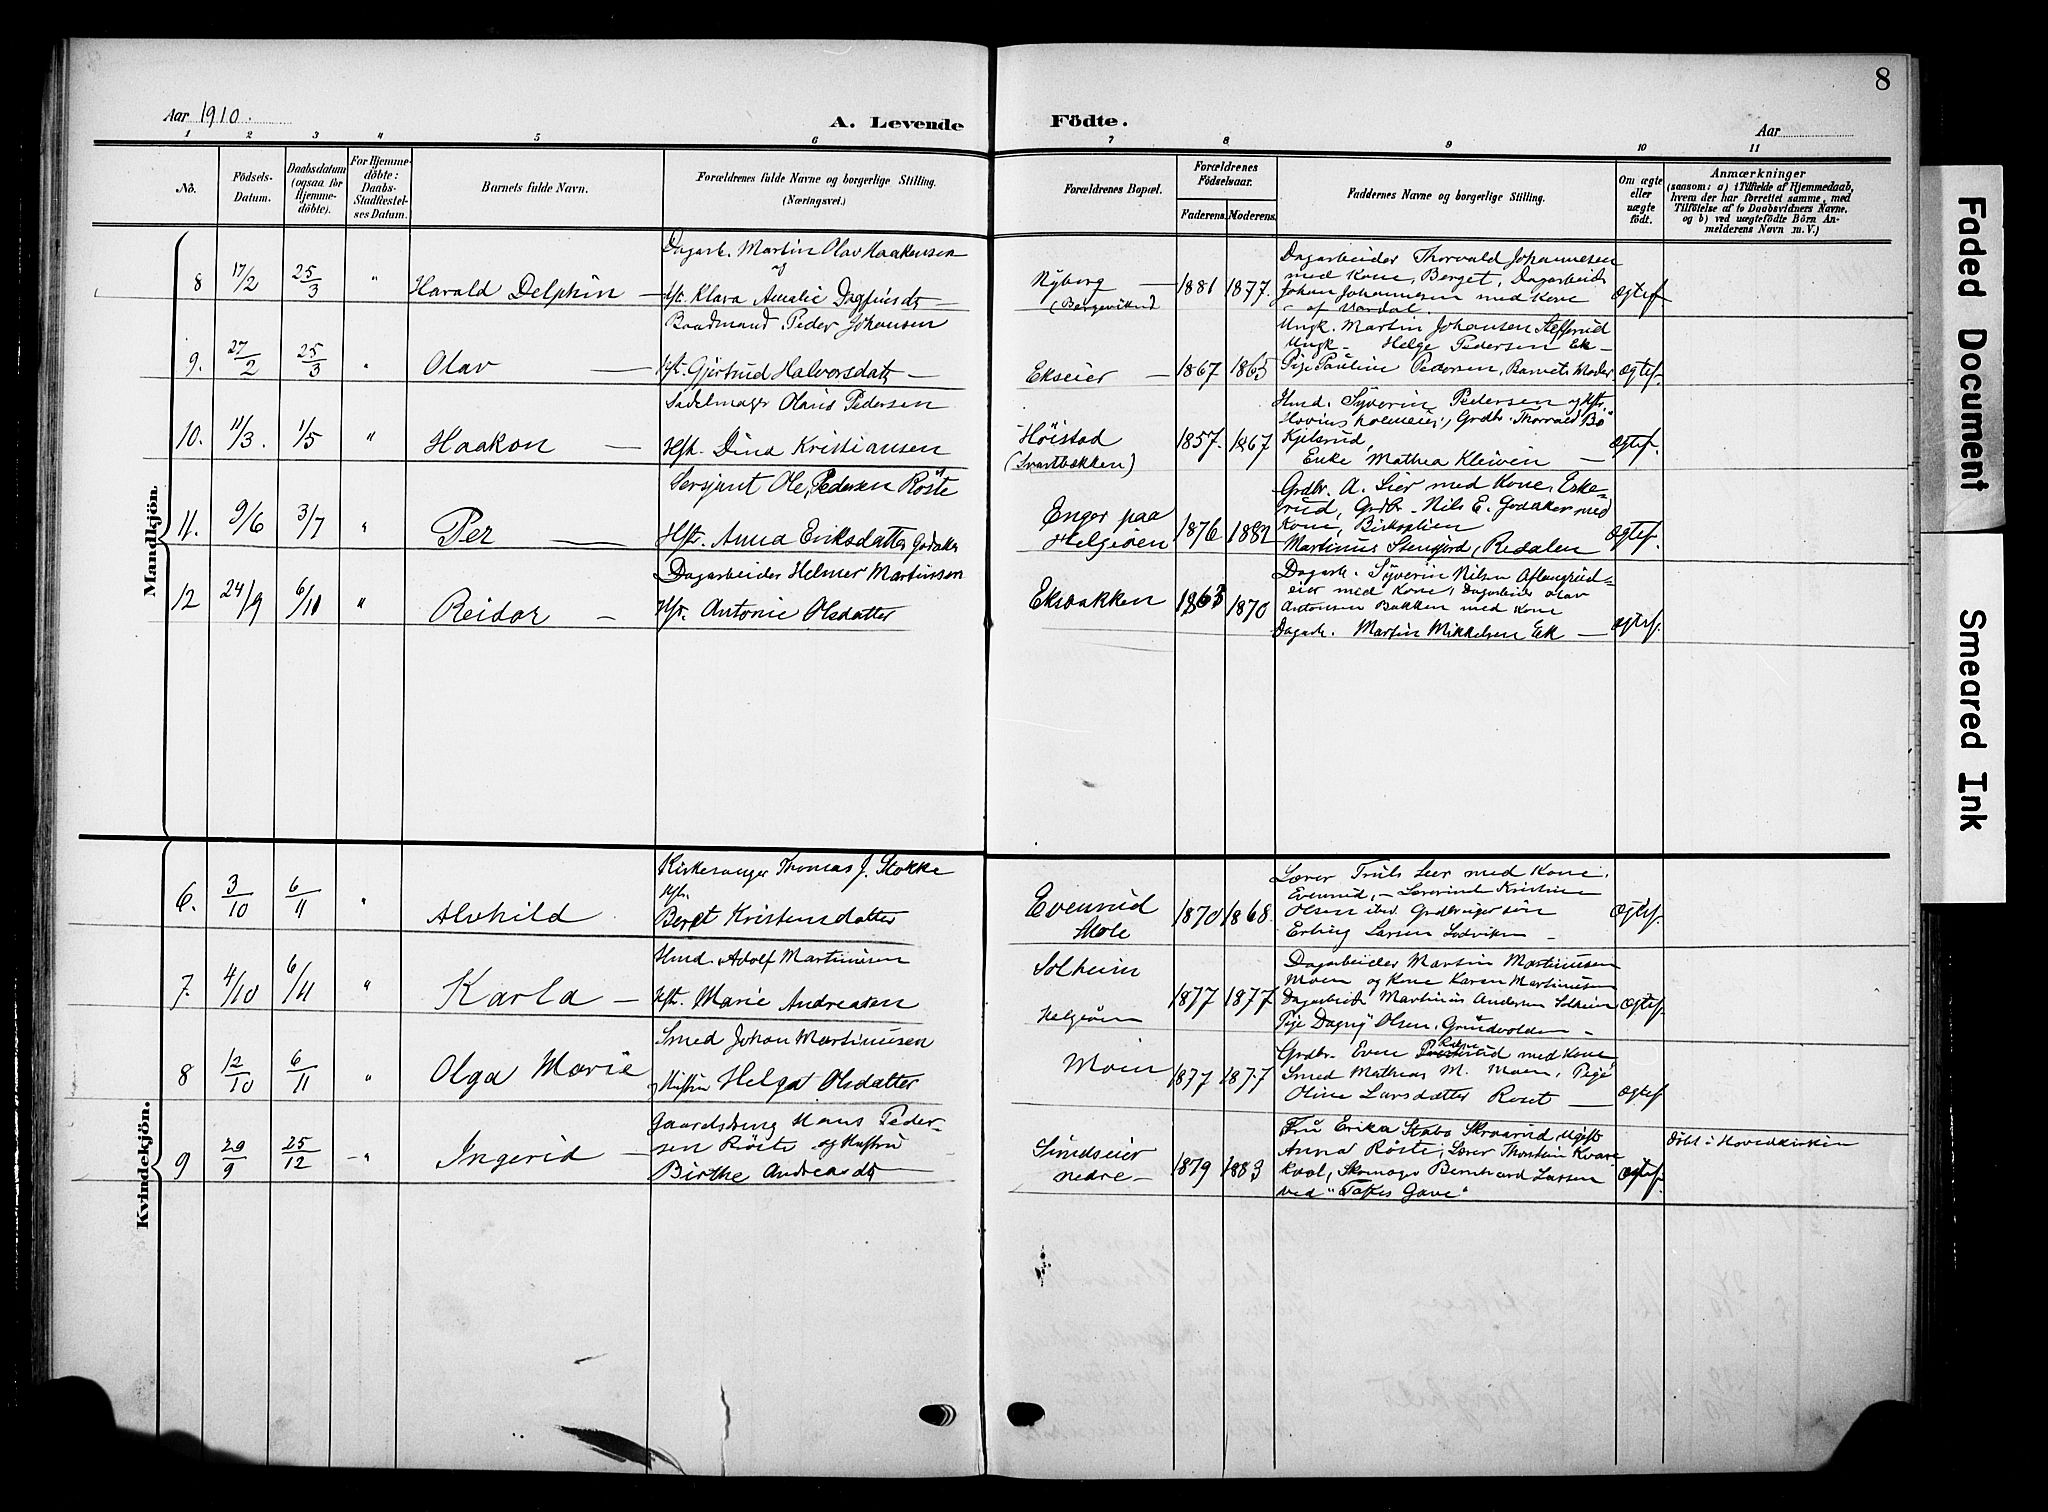 8
Aar 1910.
A. Levende Födte.
Aar
1 2 3 4 5 6 7 8 9 10 11
No.
Födsels-Datum.
Daabsdatum (ogsaa for Hjemme-döbte).
For Hjemme-döbte: Daabs-Stadfæstel-ses Datum.
Barnets fulde Navn.
Forældrenes fulde Navne og borgerlige Stilling.
(Næringsvei.)
Forældrenes Bopæl.
Forældrenes Födselsaar.
Faderens. Moderens.
Faddernes Navne og borgerlige Stilling.
Om ægte eller uægte födt.
Anmærkninger
(saasom: a) i Tilfælde af Hjemmedaab, hvem der har forrettet samme, med Tilföielse af to Daabsvidners Navne, og b) ved uægtefödte Börn An-melderens Navn m. V.)
Mandkjön.
8 17/2 25/3 " Harald Delphin —
Dagarb. Martin Olav Haakensen
og
Hst. Klara Amalie Dagfinsdtr —
Nyborg —
(Bergevikend)
1881 1877.
Dagarbeider Thorvald Johannesen
med Kone, Berget, Dagarbeid.
Johan Johannesen med Kone
— af Vardal.
Ægtef
9. 27/2 25/3 " Olav —
Baadmand Peder Johansen
Hst. Gjertrud Halvorsdatt —
Ekseier —
1867 1865
Ungk. Martin Johansen Steffsrud
Ungk. Helge Pedersen Ek —
Pige Pauline Pedersen, Barnets Moder
Ægtef.
10. 11/3. 1/5 " Haakon —
Sadelmager Olaus Pedersen
Hst. Dina Kristiansen
Höistad
(Svartbækken)
1857. 1867
Hmd. Syverin Pedersen og Hst.
Grdbr. Thorvald Bö
Kjelsrud,
Enke Mathea Kleiven —
Ægtef.
11. 9/6 3/7 " Per —
Sersjant Ole Pedersen Röste
Hstr. Anna Eriksdatter Godaker
Enger paa
Helgeöen
1876 1882
Grdbr. A. Lier med Kone, Eske-
rud, Grdbr. Nils E. Godaker med
Kone, Birkelien
Martinus Stensjord, Redalen
Ægtef.
12 24/9 6/11 " Reidar —
Dagarbeider Helmer Martinsen
Hst. Antonie Olsdatter
Eksbakken
1863 1870
Dagarb. Syverin Nilsen Aflangrud-
eier med Kone, Dagarbeider Olav
Antonsen Bakken med Kone
Dagarb. Martin Mikkelsen Ek —
Ægtef.
Kvindekjön.
6. 3/10 6/11 " Alvhild
Kirkesanger Thomas J. Stokke
Hst.
Beret Kristensdatter
Evenrud
Skole
1870 1868.
Lærer Truls Lier med Kone,
Evenrud, — Lærerinde Kristine
Olsen ibd. Grdbrugersön
Erling Larsen Lodviken —
Ægtef.
7. 4/10 6/11 " Karla —
Hmd. Adolf Martinisen
Hst. Marie Andreasen
Solheim
Helgeöen
1877 1877
Dagarbeider Martin Martinusen
Moen og Kone Karen Martinusen
Dagarbeid. Martinus Andersen Solheim
Pige Dagny Olsen, Grundvolden —
Ægtef.
8 12/10 6/11 " Olga Marie
Smed Johan Martinusen
og Hustru Helga Olsdatter
Moen
1877 1877
Grdbr. Even med Kone,
Smed Mathias M. Moen, Pige
Oline Larsdatter Roset —
Ægtef.
9 29/9 25/12 — " Ingerid —
Gaardsbrug Hans Peder-
sen Röste og Hustru
Birthe Andreasdtr
Sundseier
nedre —
1879 1883
Fru Erika Stabo Skraarud, Ugift
Anna Röste, Lærer Thorstein Kvarse
kval, Skomager Bernhard Larsen
ved "Tokes Gave"
Ægtef.
Döbt i Hovedkirken
Faded Document
Smeared Ink